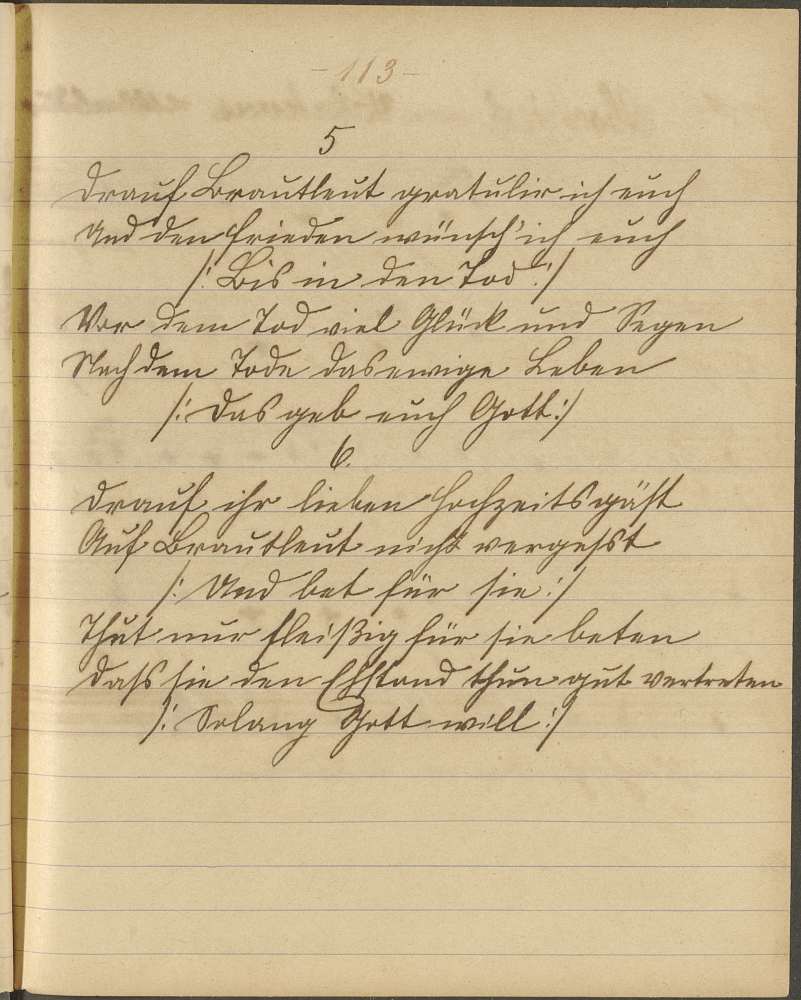 - 113 -
5
Drauf Brautleut gratulir ich euch
Und den Frieden wünsch' ich euch
/: Bis in den Tod :/
Vor dem Tod viel Glück und Segen
Nach dem Tode das ewige Leben
/: Das geb euch Gott :/
6.
Drauf ihr lieben Hochzeitsgäst
Auf Brautleut nicht vergesst
/: Und bet für sie :/
Thut nur fleißig für sie beten
Dass sie den Ehstand thun gut vertreten
/: Solang Gott will :/